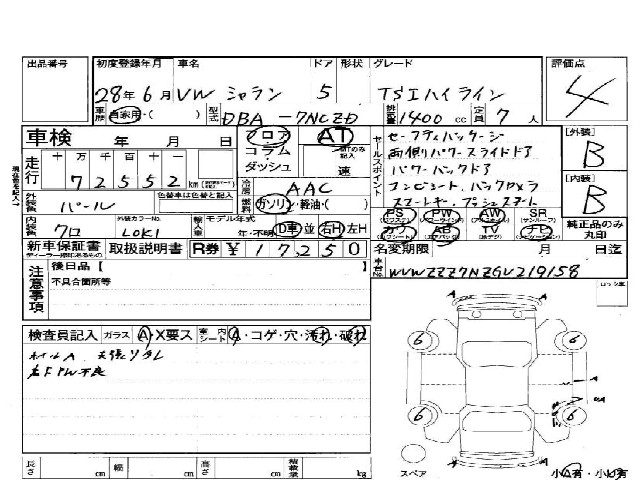 出品番号 初度登録年月 車名 ドア 形状 グレード 評価点
28年6月 VW シャラン 5 TSIハイライン 4
車歴 自家用・( ) 型式 DBA-7NCZD 排気量 1400 cc 定員 7 人
車検 年 月 日 フロア AT セールスポイント セーフティパッケージ [外装]
コラム ダッシュ 速 両側パワースライドドア B
走行 十 万 千 百 十 一 パワーバックドア [内装]
7 2 5 5 2 km 冷房 AAC B
外装色 色替車は色替と記入 パール 燃料 ガソリン・軽油・( ) スマートキー、プッシュスタート
PS PW AW SR 純正品のみ丸印
内装色 クロ 外装カラーNo. LOK1 輸入車 モデル年式 年・不明 D車 並 右H 左H
カワ AB TV ナビ
新車保証書 取扱説明書 R券 ¥17250 名変期限 月 日迄
ディーラー捺印あるもの
注意事項 後日品【 】 車台No. WVWZZZ7NZGV219158
不具合箇所等
検査員記入 ガラス A・X要ス 室内シート A・コゲ・穴・汚れ・破れ
ホイールA、天張リタレ
6 6
6 6
A
長さ cm 幅 cm 高さ cm 積載量 kg スペア 小A有・小U有